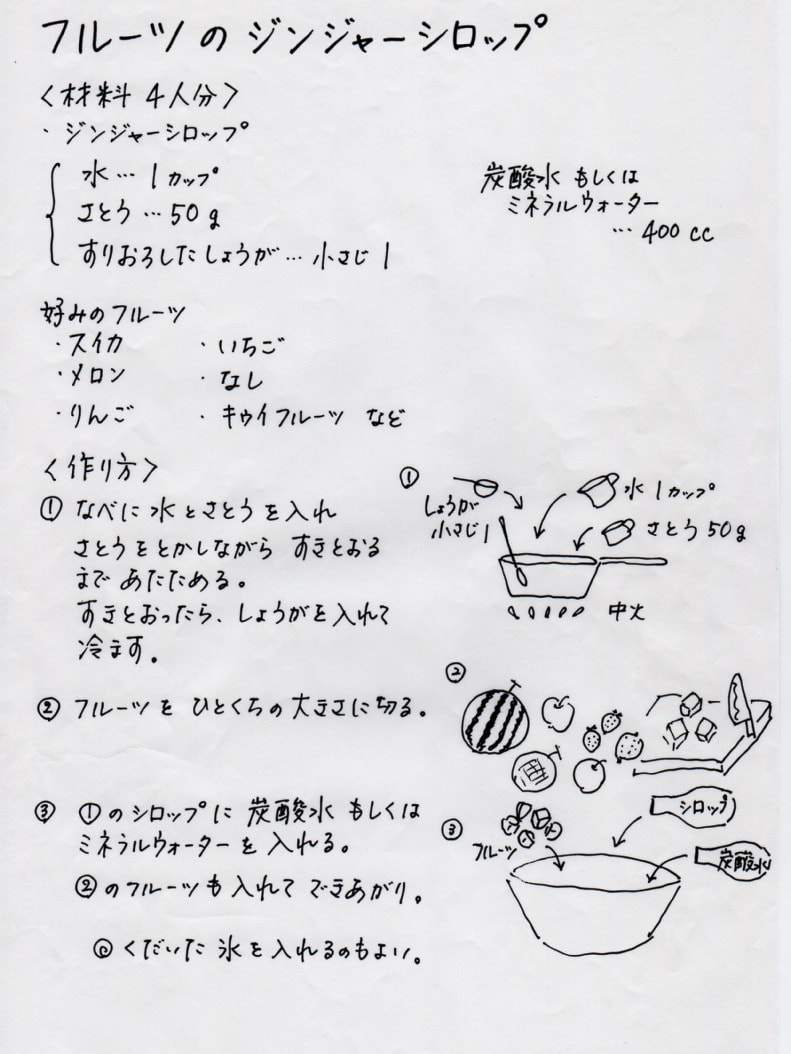 フルーツのジンジャーシロップ
〈材料 4人分〉
・ジンジャーシロップ
水…1カップ
さとう…50g
すりおろしたしょうが…小さじ1
炭酸水 もしくは
ミネラルウォーター
…400cc
好みのフルーツ
・スイカ ・いちご
・メロン ・なし
・りんご ・キウイフルーツ など
〈作り方〉
① なべに水とさとうを入れ
さとうをとかしながら すきとおる
まで あたためる。
すきとおったら、しょうがを入れて
冷ます。
② フルーツを ひとくちの大きさに切る。
③ ①のシロップに 炭酸水 もしくは
ミネラルウォーターを 入れる。
②のフルーツも入れて できあがり。
◎くだいた 氷を入れるのもよい。
①
しょうが
小さじ1
水1カップ
さとう50g
中火
②
③
フルーツ
シロップ
炭酸水